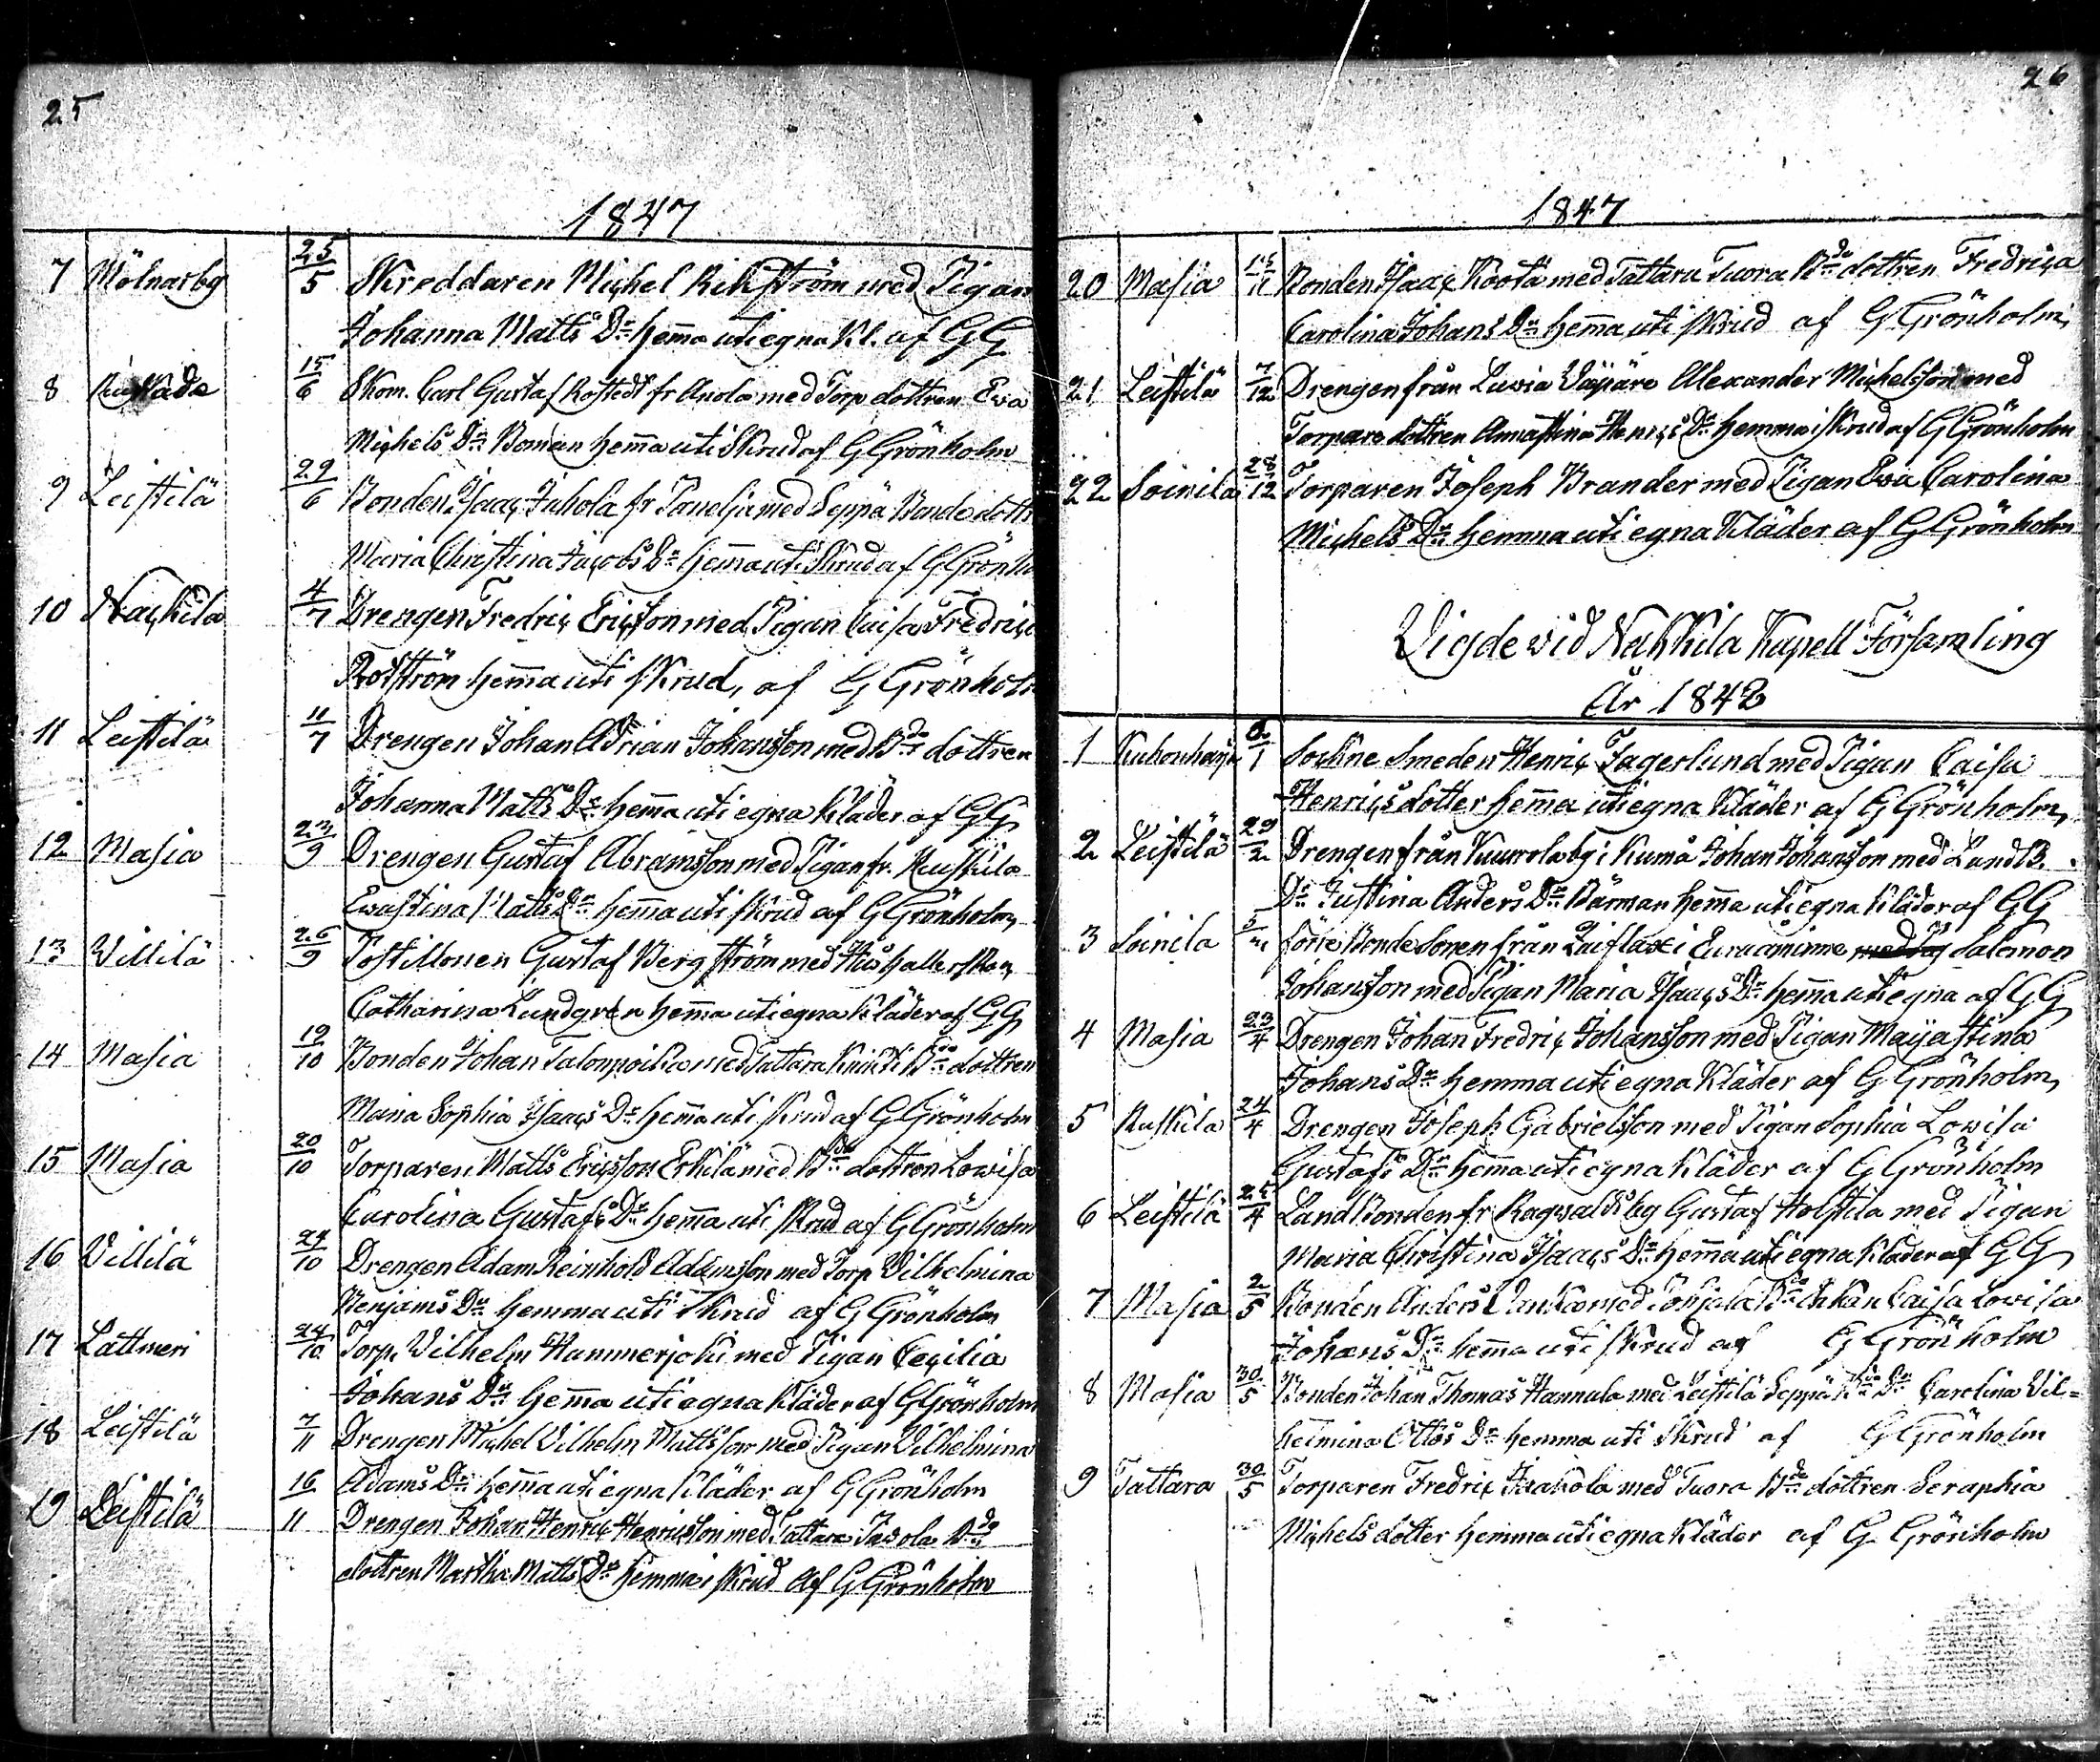 25
1847
7 Mölnarby 25/5 Skreddaren Michel Rikström med Pigan
Johanna Matts Dr hem̄a uti egna Kl. af GG
8 15/6 Skom. Carl Gustaf Rostedt fr Anola med Torp dottren Eva
Michels Dr Boman hem̄a uti Skrud af G Grönholm
9 Leistilä 29/6 Bonden Isaac Juhola fr Panelia med Seppä Bonde dottr
Maria Christina Jacobs Dr hem̄a uti Skrud af G Grönho
10 Nackila 4/7 Drengen Fredric Ericsson med Pigan Caisa Fredrica
Rotström hem̄a uti skrud, af G Grönholm
11 Leistilä 11/7 Drengen Johan Adrian Johansson med Bde dottren
Johanna Matts Dr hem̄a uti egna kläder af GG
12 Masia 23/9 Drengen Gustaf Abramsson med Pigan fr. Ruskila
Evastina Matts Dr hem̄a uti skrud af G Grönholm
13 Villilä 26/9 Postillonen Gustaf Bergström med Hushållerskan
Catharina Lundgren hem̄a uti egna kläder af GG
14 Masia 19/10 Bonden Johan Talonpoika med Tattara Knihti Bde dottren
Maria Sophia Isaacs Dr hem̄a uti skrud af G Grönholm
15 Masia 20/10 Torparen Matts Ericsson Erkilä med Bde dottren Lowisa
Carolina Gustafs Dr hem̄a uti skrud af G Grönholm
16 Villilä 24/10 Drengen Adam Reinhold Adamsson med Torp Vilhelmina
Benjams Dr hemma uti Skrud af G Grönholm
17 Lattmeri 24/10 Torp. Vilhelm Hammerjoki med Pigan Cecilia
Johans Dr hem̄a uti egna Kläder af G Grönholm
18 Leistilä 7/11 Drengen Michel Vilhelm Mattsson med Pigan Vilhelmina
Adams Dr hem̄a uti egna Kläder af G Grönholm
19 Leistilä 16/11 Drengen Johan Henric Henricsson med Tattara Jawola Bde
dottren Martha Matts Dr hemma i skrud af G Grönholm
26
1847
20 Masia 11 Bonden Isaac Koota med Tattara Tuora Bde dottren Fredrica
Carolina Johans Dr hem̄a uti skrud af G Grönholm,
21 Leistilä 7/12 Drengen från Luvia Väpäre Alexander Michelsson med
Torpare dottren Annastina Henrics Dr hemma i skrud af G Grönholm
22 Soinila 28/12 Torparen Joseph Brander med Pigan Eva Carolina
Michels Dr hemma uti egna Kläder af G Grönholm
Vigde vid Nakkila Kapell Församling
År 1848
1 1 Sockne Smeden Henric Fagerlund med Pigan Caisa
Henrics dotter hem̄a uti egna Kläder af G Grönholm,
2 Leistilä 29/2 Drengen från Kuurola by i Kumå Johan Johansson med LandB.
Dr Justina Anders Dr Bärman hem̄a uti egna kläder af GG
3 Soinila förre Bonde Sonen från i Euraåminne Salomon
Johansson med Pigan Maria Isaacs Dr hem̄a uti egna af GG
4 Masia 23/4 Drengen Johan Fredric Johansson med Pigan Majastina
Johans Dr hemma uti egna Kläder af G Grönholm,
5 Ruskila 24/4 Drengen Joseph Gabrielsson med Pigan Sophia Lowisa
Gustafs Dr hem̄a uti egna Kläder af G Grönholm
6 Leistilä 25/4 LandBonden fr Ragvalds by Gustaf Holstila med Pigan
Maria Christina Isaacs Dr hem̄a uti egna Kläder af GG
7 Masia 2/5 Bonden Anders med Enkan Caisa Lovisa
Johans Dr hem̄a uti skrud af G Grönholm
8 Masia 30/5 Bonden Johan Thomas Hannula med Leistilä Seppä Bde Dr Carolina Vil=
helmina Ottos Dr hemma uti Skrud af G Grönholm
9 Tattara 30/5 Torparen Fredric Jaakola med Tuora Bde dottren Seraphia
Michels dotter hemma uti egna Kläder af G Grönholm